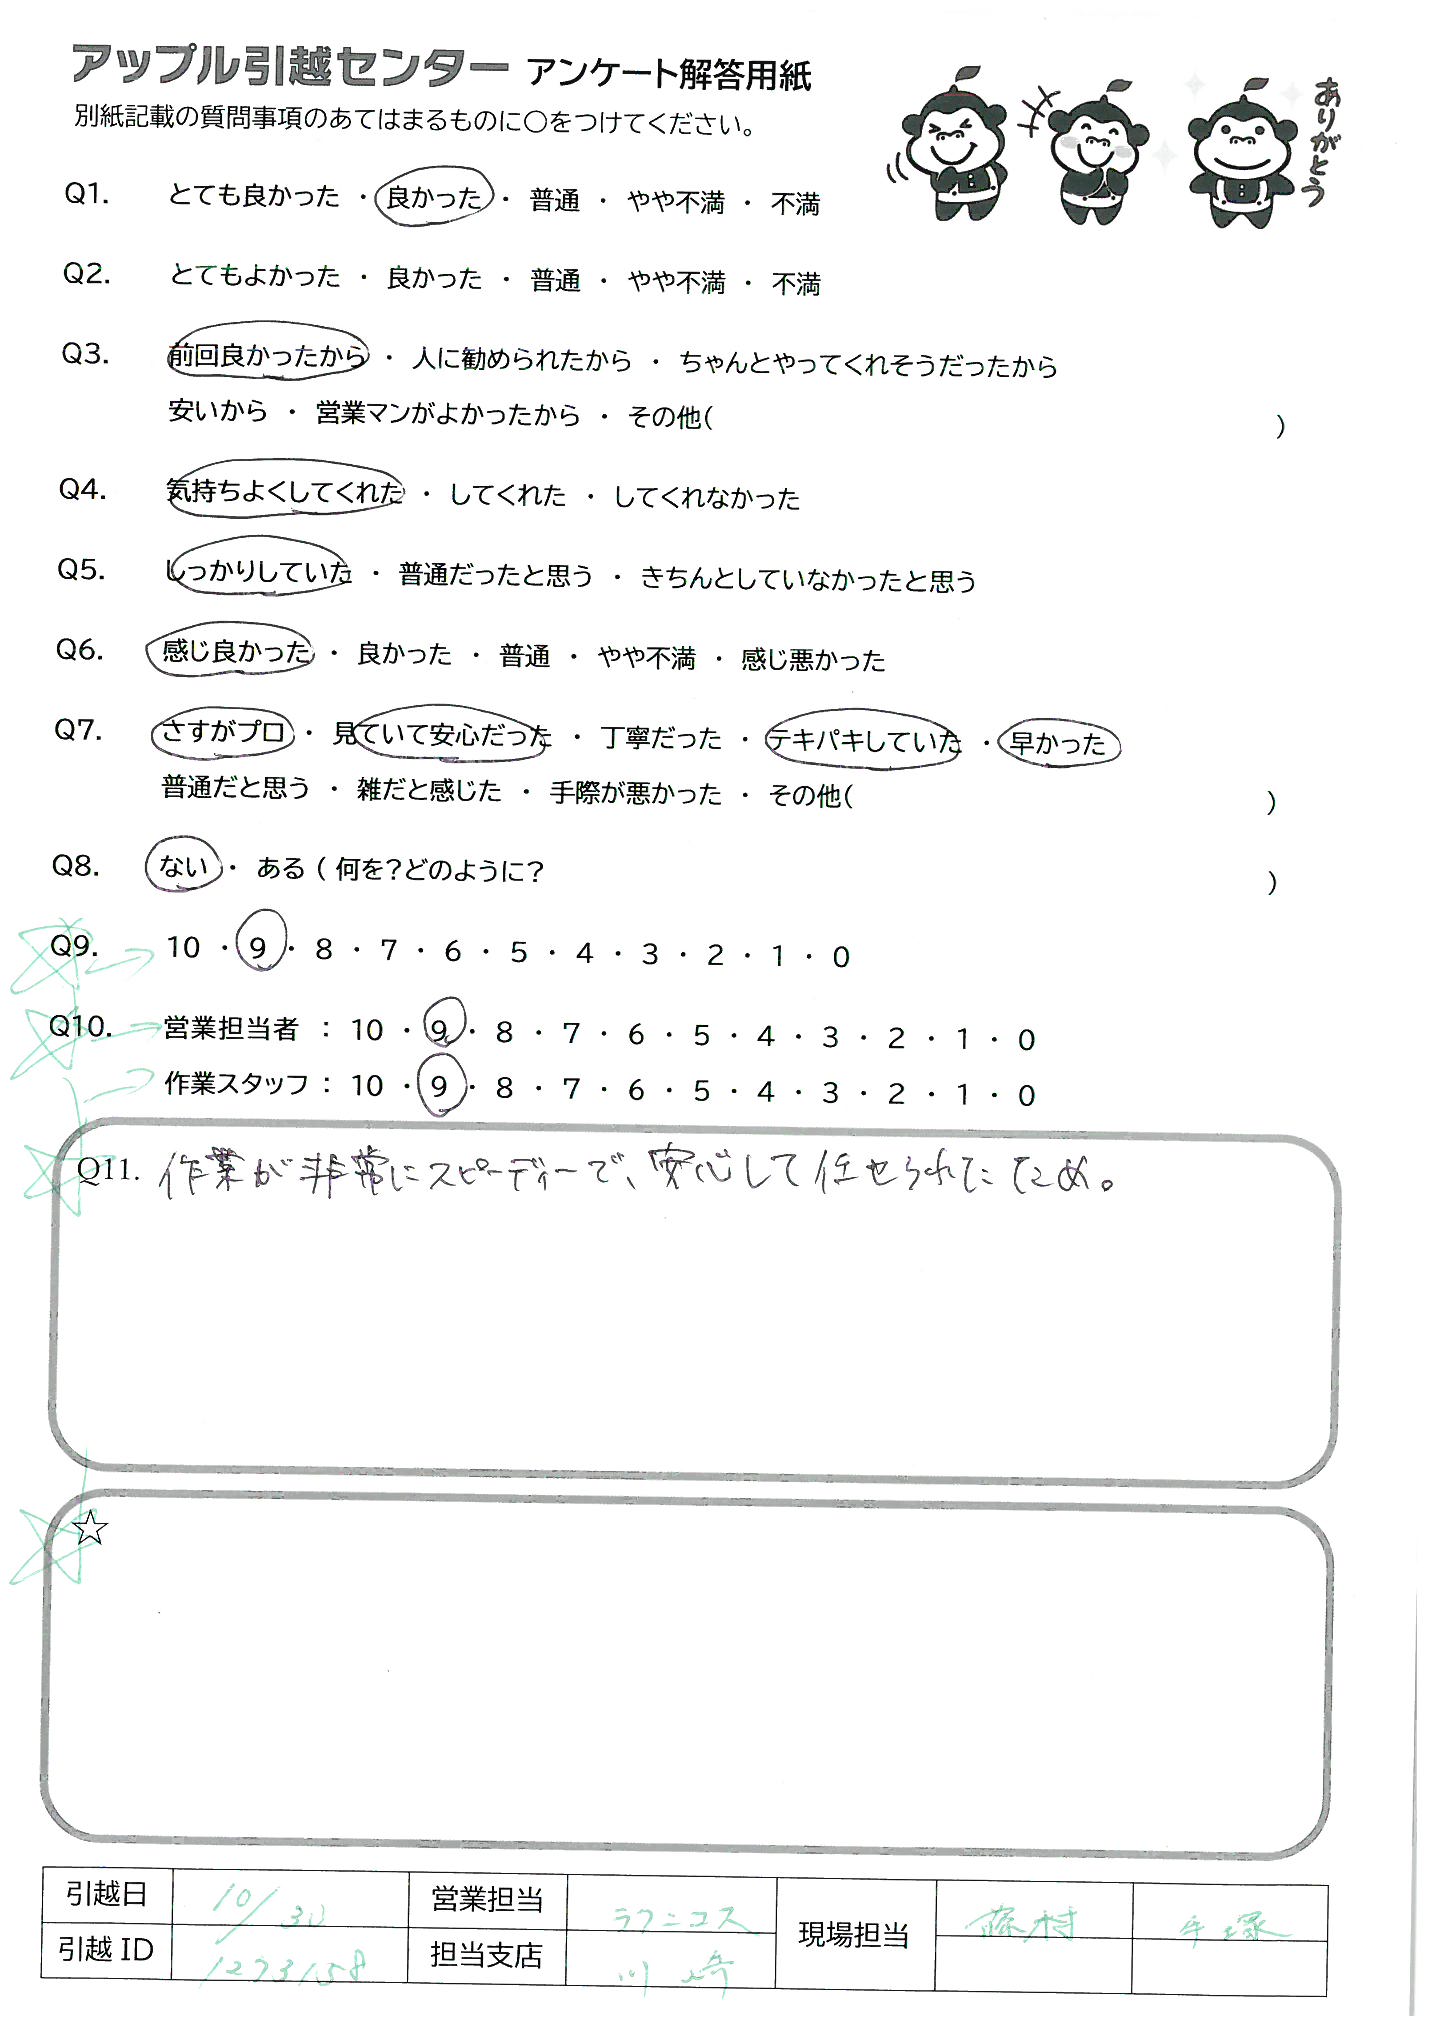 アップル引越センター アンケート解答用紙
別紙記載の質問事項のあてはまるものに○をつけてください。
ありがとう
Q1. とても良かった ・ 良かった ・ 普通 ・ やや不満 ・ 不満
Q2. とてもよかった ・ 良かった ・ 普通 ・ やや不満 ・ 不満
Q3. 前回良かったから ・ 人に勧められたから ・ ちゃんとやってくれそうだったから
安いから ・ 営業マンがよかったから ・ その他( )
Q4. 気持ちよくしてくれた ・ してくれた ・ してくれなかった
Q5. しっかりしていた ・ 普通だったと思う ・ きちんとしていなかったと思う
Q6. 感じ良かった ・ 良かった ・ 普通 ・ やや不満 ・ 感じ悪かった
Q7. さすがプロ ・ 見ていて安心だった ・ 丁寧だった ・ テキパキしていた ・ 早かった
普通だと思う ・ 雑だと感じた ・ 手際が悪かった ・ その他( )
Q8. ない ・ ある ( 何を？どのように？ )
Q9. 10 ・ 9 ・ 8 ・ 7 ・ 6 ・ 5 ・ 4 ・ 3 ・ 2 ・ 1 ・ 0
Q10. 営業担当者 : 10 ・ 9 ・ 8 ・ 7 ・ 6 ・ 5 ・ 4 ・ 3 ・ 2 ・ 1 ・ 0
作業スタッフ : 10 ・ 9 ・ 8 ・ 7 ・ 6 ・ 5 ・ 4 ・ 3 ・ 2 ・ 1 ・ 0
Q11. 作業が非常にスピーディーで、安心して任せられたため。
☆
引越日 10/30 営業担当 現場担当 藤村 手塚
引越 ID 1273158 担当支店 川崎